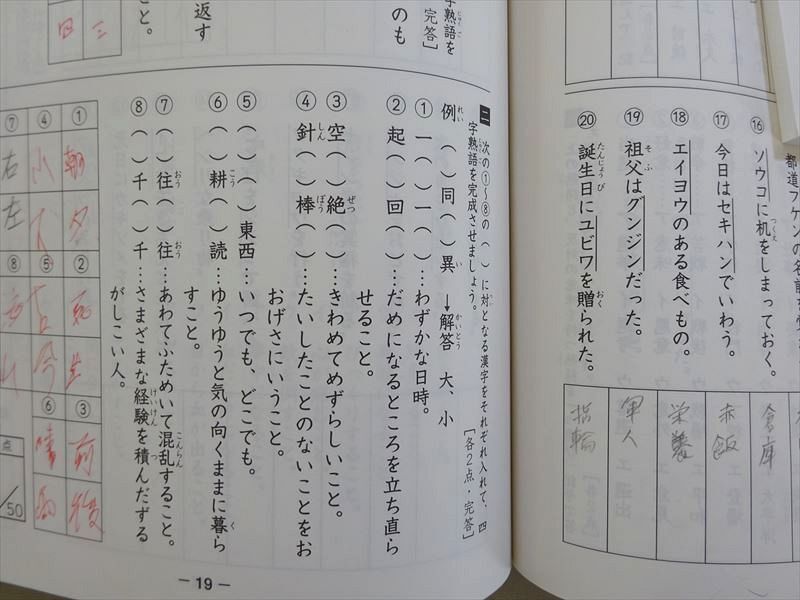 都道フケンの名前を
⑯ ソウコに机をしまっておく。
⑰ 今日はセキハンでいわう。
⑱ エイヨウのある食べもの。
⑲ 祖父はグンジンだった。
⑳ 誕生日にユビワを贈られた。
倉庫
赤飯
栄養
軍人
指輪
字熟語を
完答］
のも
返す
こと。
三
四
二 次の①〜⑧の（ ）に対となる漢字をそれぞれ入れて、四
字熟語を完成させましょう。
［各2点・完答］
例 （ ）同（ ）異 →解答 大、小
① 一（ ）一（ ）…わずかな日時。
② 起（ ）回（ ）…だめになるところを立ち直ら
せること。
③ 空（ ）絶（ ）…きわめてめずらしいこと。
④ 針（ ）棒（ ）…たいしたことのないことをお
おげさにいうこと。
⑤ （ ）（ ）東西…いつでも、どこでも。
⑥ （ ）耕（ ）読…ゆうゆうと気の向くままに暮ら
すこと。
⑦ （ ）往（ ）往…あわてふためいて混乱すること。
⑧ （ ）千（ ）千…さまざまな経験を積んだずる
がしこい人。
① 朝 夕
② 死 生
③ 前 後
④ 小 大
⑤ 古 今
⑥ 晴 雨
⑦ 右 左
⑧
点
/50
－19－